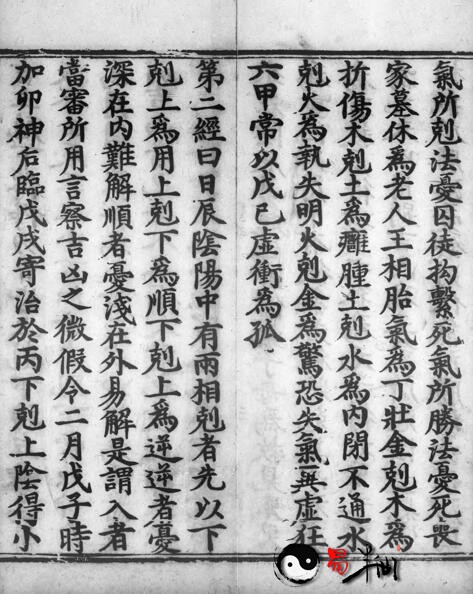 氣所剋法憂囚徒拘繫死氣所勝法憂死喪
家墓休為老人王相胎氣為丁壯金剋木為
折傷木剋土為癰腫土剋水為內閉不通水
剋火為執失明火剋金為驚恐失氣無虛狂
六甲常以戊己虛衝為孤
第二經曰日辰陰陽中有兩相剋者先以下
剋上為用上剋下為順下剋上為逆逆者憂
深在內難解順者憂淺在外易解是謂入者
當審所用言察吉凶之微假令二月戊子時
加卯神后臨戊戌寄治於丙下剋上陰得小
易半仙